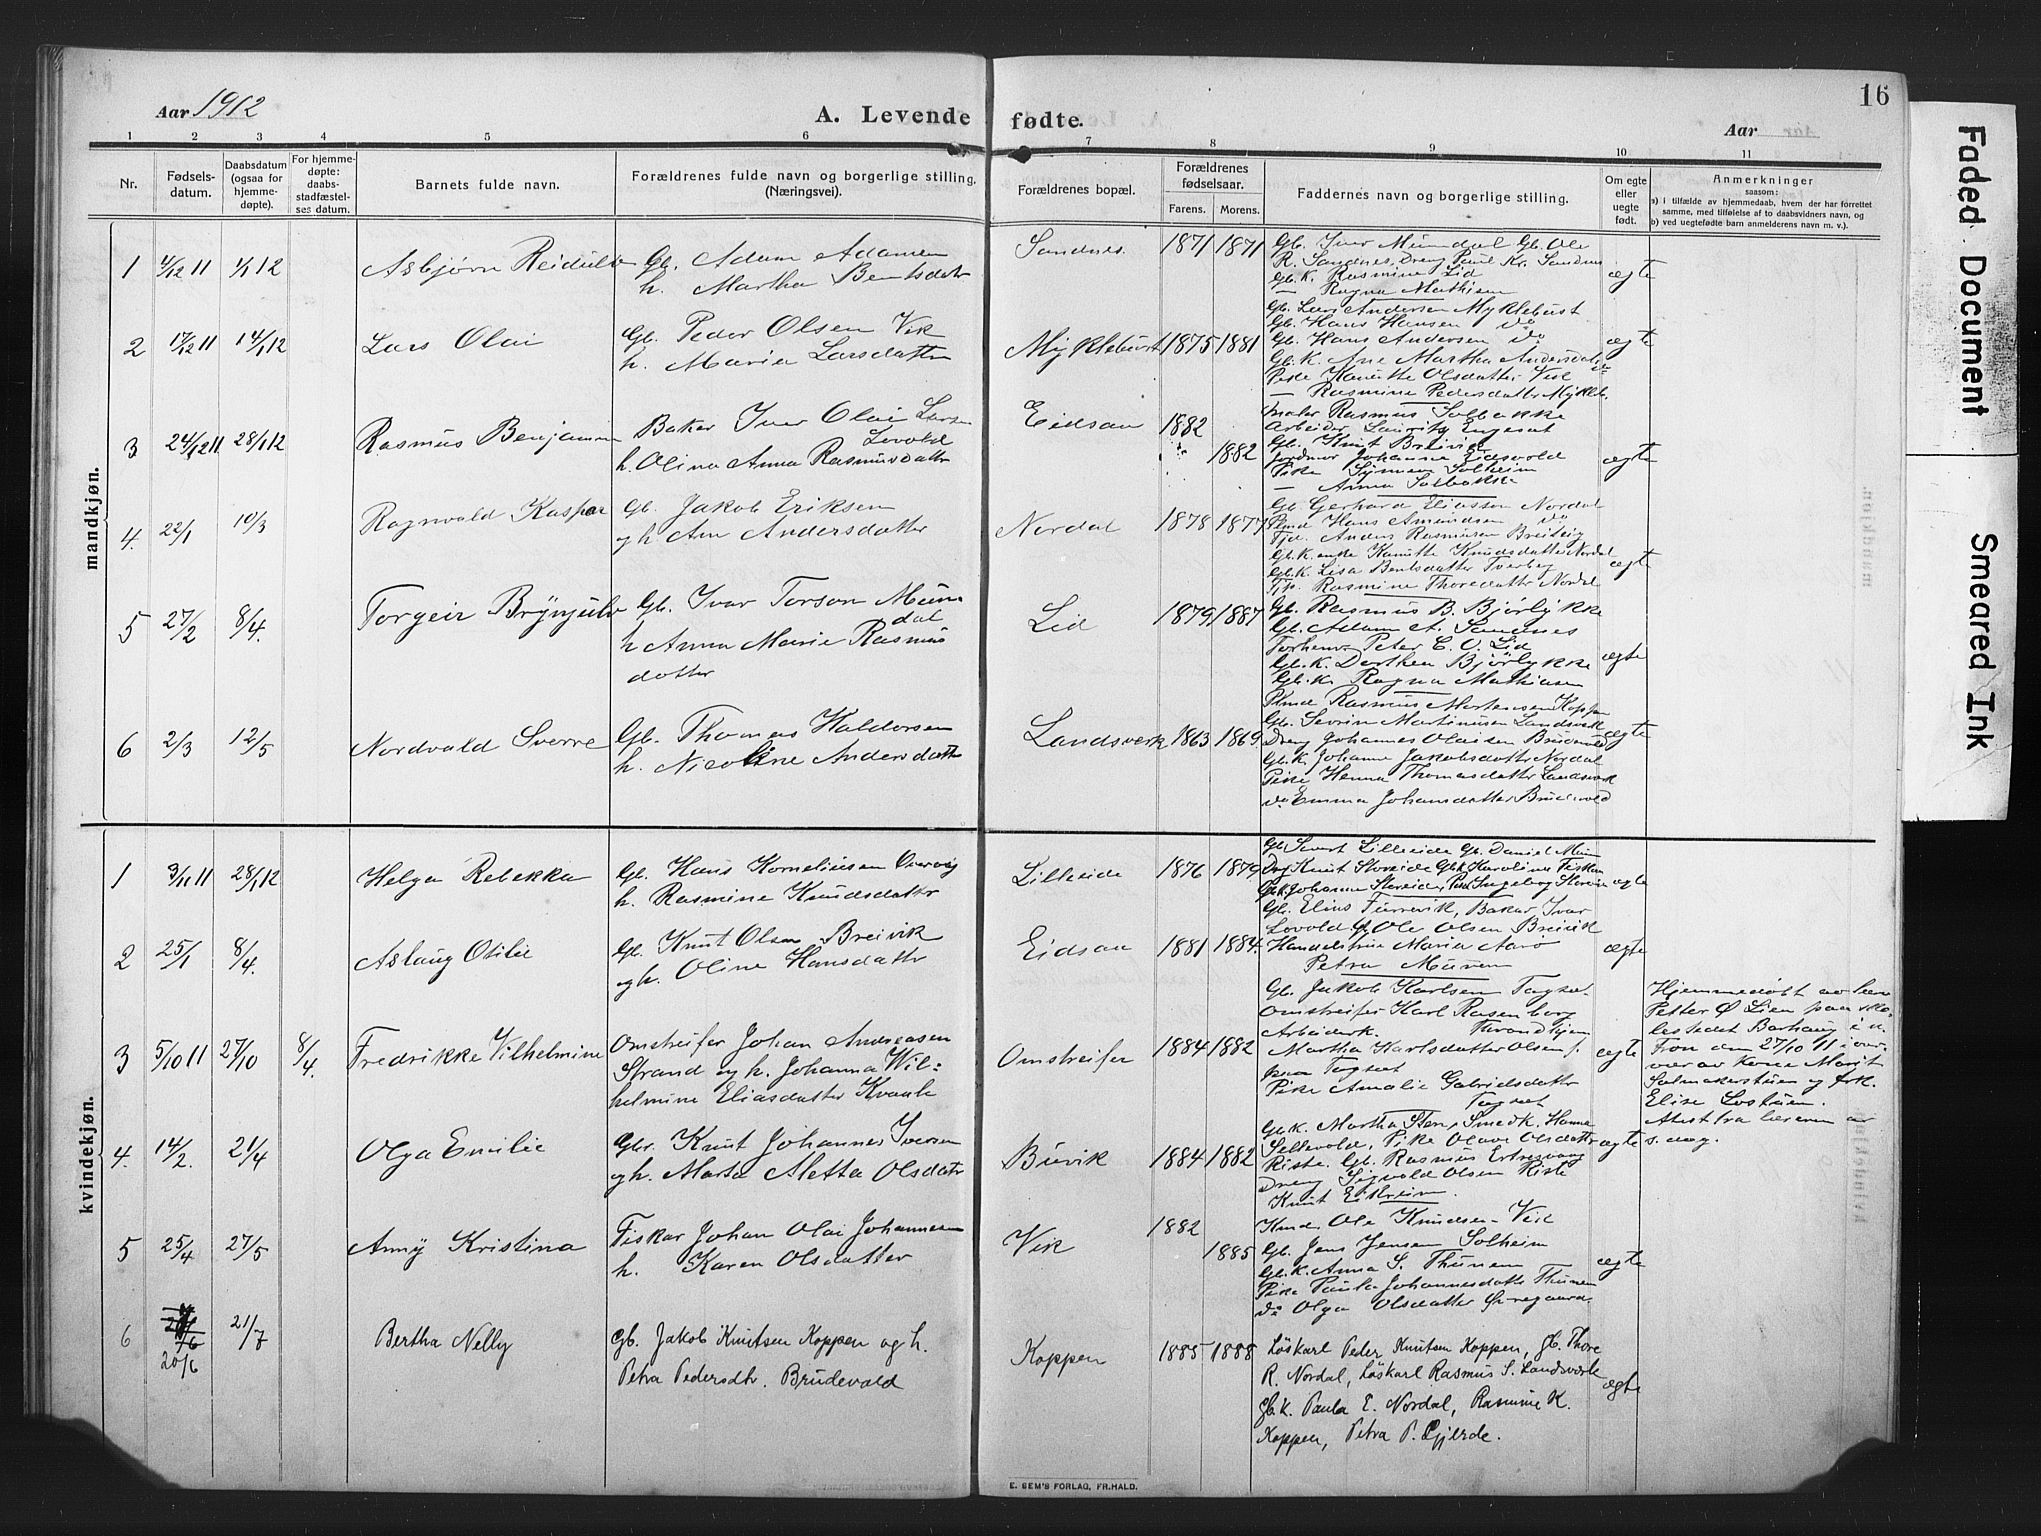 Aar 1912
A. Levende fødte.
Aar
16
1 2 3 4 5 6 7 8 9 10 11
Nr.
Fødsels-
datum.
Daabsdatum
(ogsaa for
hjemme-
døpte).
For hjemme-
døpte:
daabs-
stadfæstel-
ses datum.
Barnets fulde navn.
Forældrenes fulde navn og borgerlige stilling.
(Næringsvei).
Forældrenes bopæl.
Forældrenes
fødselsaar.
Farens. Morens.
Faddernes navn og borgerlige stilling.
Om egte
eller
uegte
født.
Anmerkninger
saasom:
a) i tilfælde av hjemmedaab, hvem der har forrettet
samme, med tilføielse af to daabsvidners navn, og
b) ved uegtefødte barn anmelderens navn m. v.).
mandkjøn.
1 4/12 11 1/1 12 Asbjørn Reidulv
Gb. Adam Adamsen
h. Martha Bentsdatr
Sandnes. 1871 1871
Gb. Iver Mundal Gb. Ole
R. Sandnes, Dreng Paul Kr. Sandnes
Gb.K. Rasmine Lid
— Ragna Mathisen
ægte
2 17/12 11 14/1 12 Lars Olai
Gb. Peder Olsen Vik
h. Maria Larsdatter
Myklebust 1875 1881
Gb. Lars Andersen Myklebust
Gb. Hans Hansen do
Gb. Hans Andersen do
Gb.K Ane Martha Andersdatr do
Pike Hanutte Olsdatter Vik
— Rasmine Pedersdatter Mykleb.
ægte
3 24/12 11 28/1 12 Rasmus Benjamin
Baker Iver Olai Larsen
Lovold
h. Olina Anna Rasmusdattr
Eidsaa 1882
1882
Maler Rasmus Solbakke
Arbeider Lauritz Engeset
Gb. Knut Breivik
Jordmor Johanna Eidsvold
Pike Solheim
— Anna Solbakke
ægte
4. 22/1 10/3 Ragnvald Kaspar
Gb. Jakob Eriksen
og h Ane Andersdatter
Nordal 1878 1877
Gb. Gerhard Eliassen Nordal
Hans Amundsen do
Anders Rasmussen Breiteig
Gb.K. enke Hanutte Knudsdatter Nordal
Gb.K. Lisa Bentsdatter Tverberg
Rasmine Thoredattr Nordal
ægte
5 27/2 8/4. Torgeir Brynjulv
Gb. Ivar Torson Mun-
dal
h Anna Marie Rasmus
datter
Lid 1879 1887
Gb. Rasmus B. Bjørlykke
Gb. Adam A. Sandnes
Peter C. O. Lid
Gb.K. Dorthea Bjørlykke
Gb.K. Ragna Mathisen
ægte
6 2/3 12/5 Nordvald Sverre
Gb. Thomas Haldorsen
h. Nicoline Andersdattr
Landsverk 1863 1869
Rasmus Mortensen Koppen
Gb. Severin Martinusen Landsverk
Dreng Johannes Olaisen Brudevold
Gb.K. Johanne Jakobsdattr Nordal
Pike Hanna Thomasdatter Landsverk
do Emma Johansdatter Brudevold
ægte
kvindekjøn.
1 3/11 11 28/1 12 Helga Rebekka
Gb. Hans Korneliusen
h. Rasmine Knudsdattr
Lilleeide 1876 1879
Gb. Sivert Lilleeide Gb. Daniel Mun
Drg Knut Storeide Gbk Karoline Fiskaa
Gb.K. Johanna Storeide, Pike Ingeborg Storeide
ægte
2 25/1 8/4. Aslaug Otilie
Gb. Knut Olsen Breivik
og h. Oline Hansdattr
Eidsaa 1881 1884.
Gb. Elius Furrevik, Baker Ivar
Lovold Gb Ole Olsen Breivik
Maria Aarø
Petra Muren
ægte
3 5/10 11 27/10 8/4. Fredrikke Vilhelmine
Omstreifer Johan Andreasen
Strand og h. Johanna Wil-
helmine Eliasdatter Kvaale
Omstreifer 1884 1882
Gb. Jakob Karlsen Tagset
Omstreifer Karl Rosenborg
Arbeiderk. Throndhjem
Martha Karlsdatter Olsen f.
paa Tagset
Pike Amalie Gabrielsdattr
Tagset
ægte
Hjemmedøbt av lærer
Petter Ø Lien paa sko-
lestedet Barhaug i n.
Fron den 27/10 11 i over-
vær av kone Marit
Salmakerstuen og frk.
Elise Lostuen.
Attest fra læreren av
s. dag.
4. 14/2. 21/4 Olga Emilie
Gbr. Knut Johannes Iversen
og h. Marta Aletta Olsdatr
Buvik 1884 1882
Gb.K. Martha Sten, Smedk. Hanne
Seltevold, Pike Olave Olsdattr
Riste. Gb. Rasmus Ertresvaag
Dreng Sigvald Olsen Riste
Knut Eikreim.
ægte
5 25/4 27/5 Anny Kristina
Fisker Johan Olai Johannesen
h. Karen Olsdatter
Vik 1882
1885
Ole Knudsen Vik
Gb. Jens Jensen Solheim
Gb.K. Anna S. Thunem
Pike Paula Johannesdattr Thunem
do Olga Olsdatter
ægte
6 20/6 21/7 Bertha Nelly
Gb. Jakob Knutsen Koppen og h.
Petra Pedersdtr. Brudevold
Koppen 1885 1888
Løskarl Peder Knutsen Koppen, gb. Thore
R. Nordal, Løskarl Rasmus S. Landsverk
gb.k. Paula E. Nordal, Rasmine K.
Koppen, Petra P. Gjerde.
ægte
E. SEM'S FORLAG, FR.HALD.
Faded Document
Smeared Ink